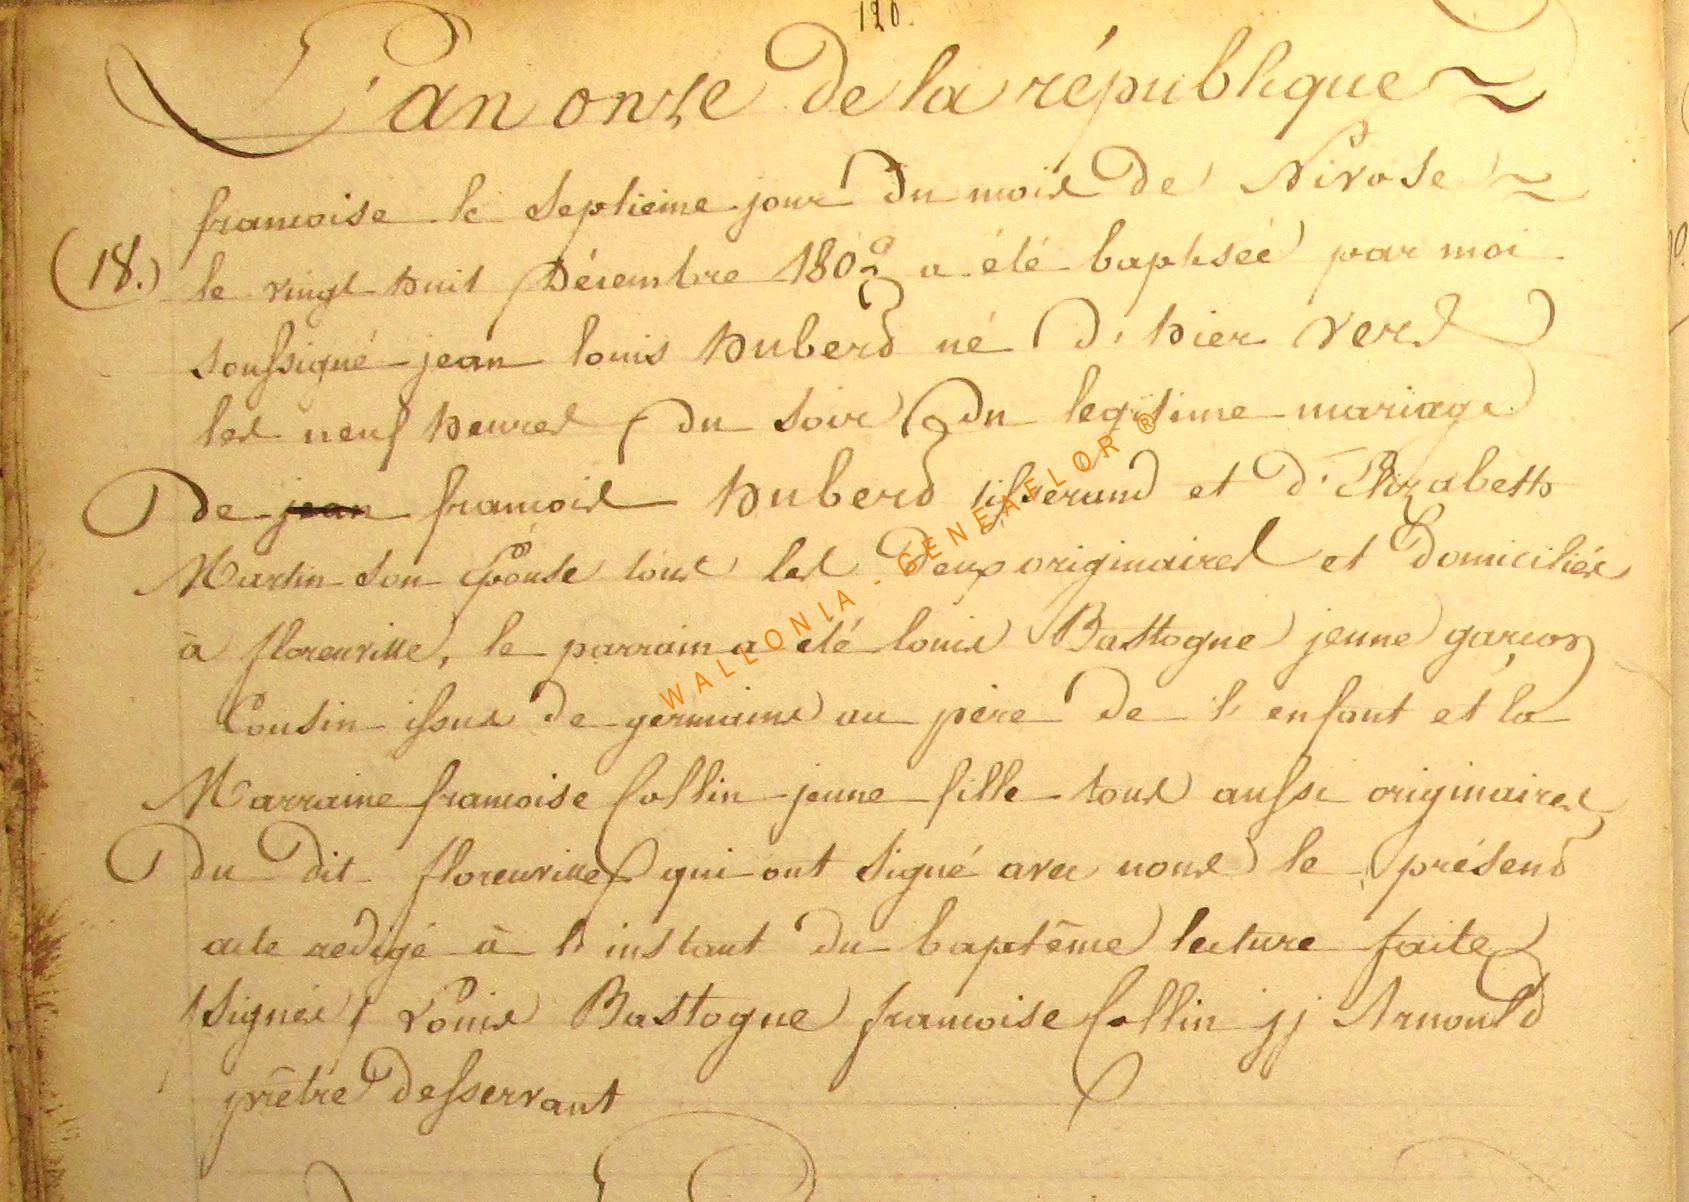 120.
L'an onze de la république
francoise le septieme jour du mois de Nivose
(18.) le vingt huit Décembre 1802 a été baptisée par moi
soussigné jean louis huberd né d'hier vers
les neuf heures du soir du legitime mariage
De jean francois huberd tisserand et d'Elizabeth
Martin son épouse tous les deux originaires et domiciliés
à florenville, le parrain a été louis Bastogne jeune garcon
Cousin issus de germains au père de l'enfant et la
Marraine francoise Collin jeune fille tous aussi originaires
Du dit florenville qui ont signé avec nous le présend
acte redigé à l'instant du baptême lecture faite
/signés/ Louis Bastogne francoise Collin jj Arnould
prêtre desservant
WALLONIA . GENEAELOR ®